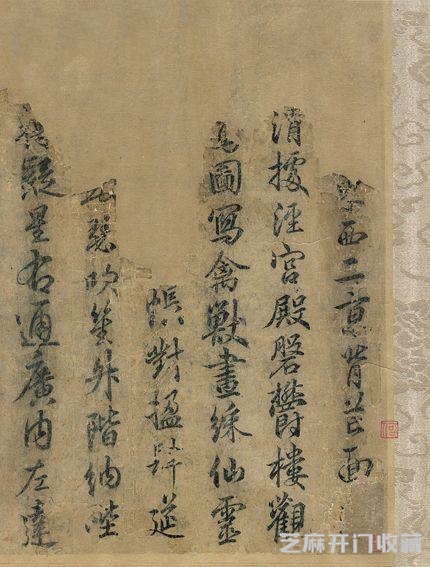 西二京背芒面
渭據涇宮殿磐鬱樓觀
圖寫禽獸畫綵仙靈
帳對楹肆筵
瑟吹笙升階納陛
疑星右通廣內左達
芝麻开门收藏